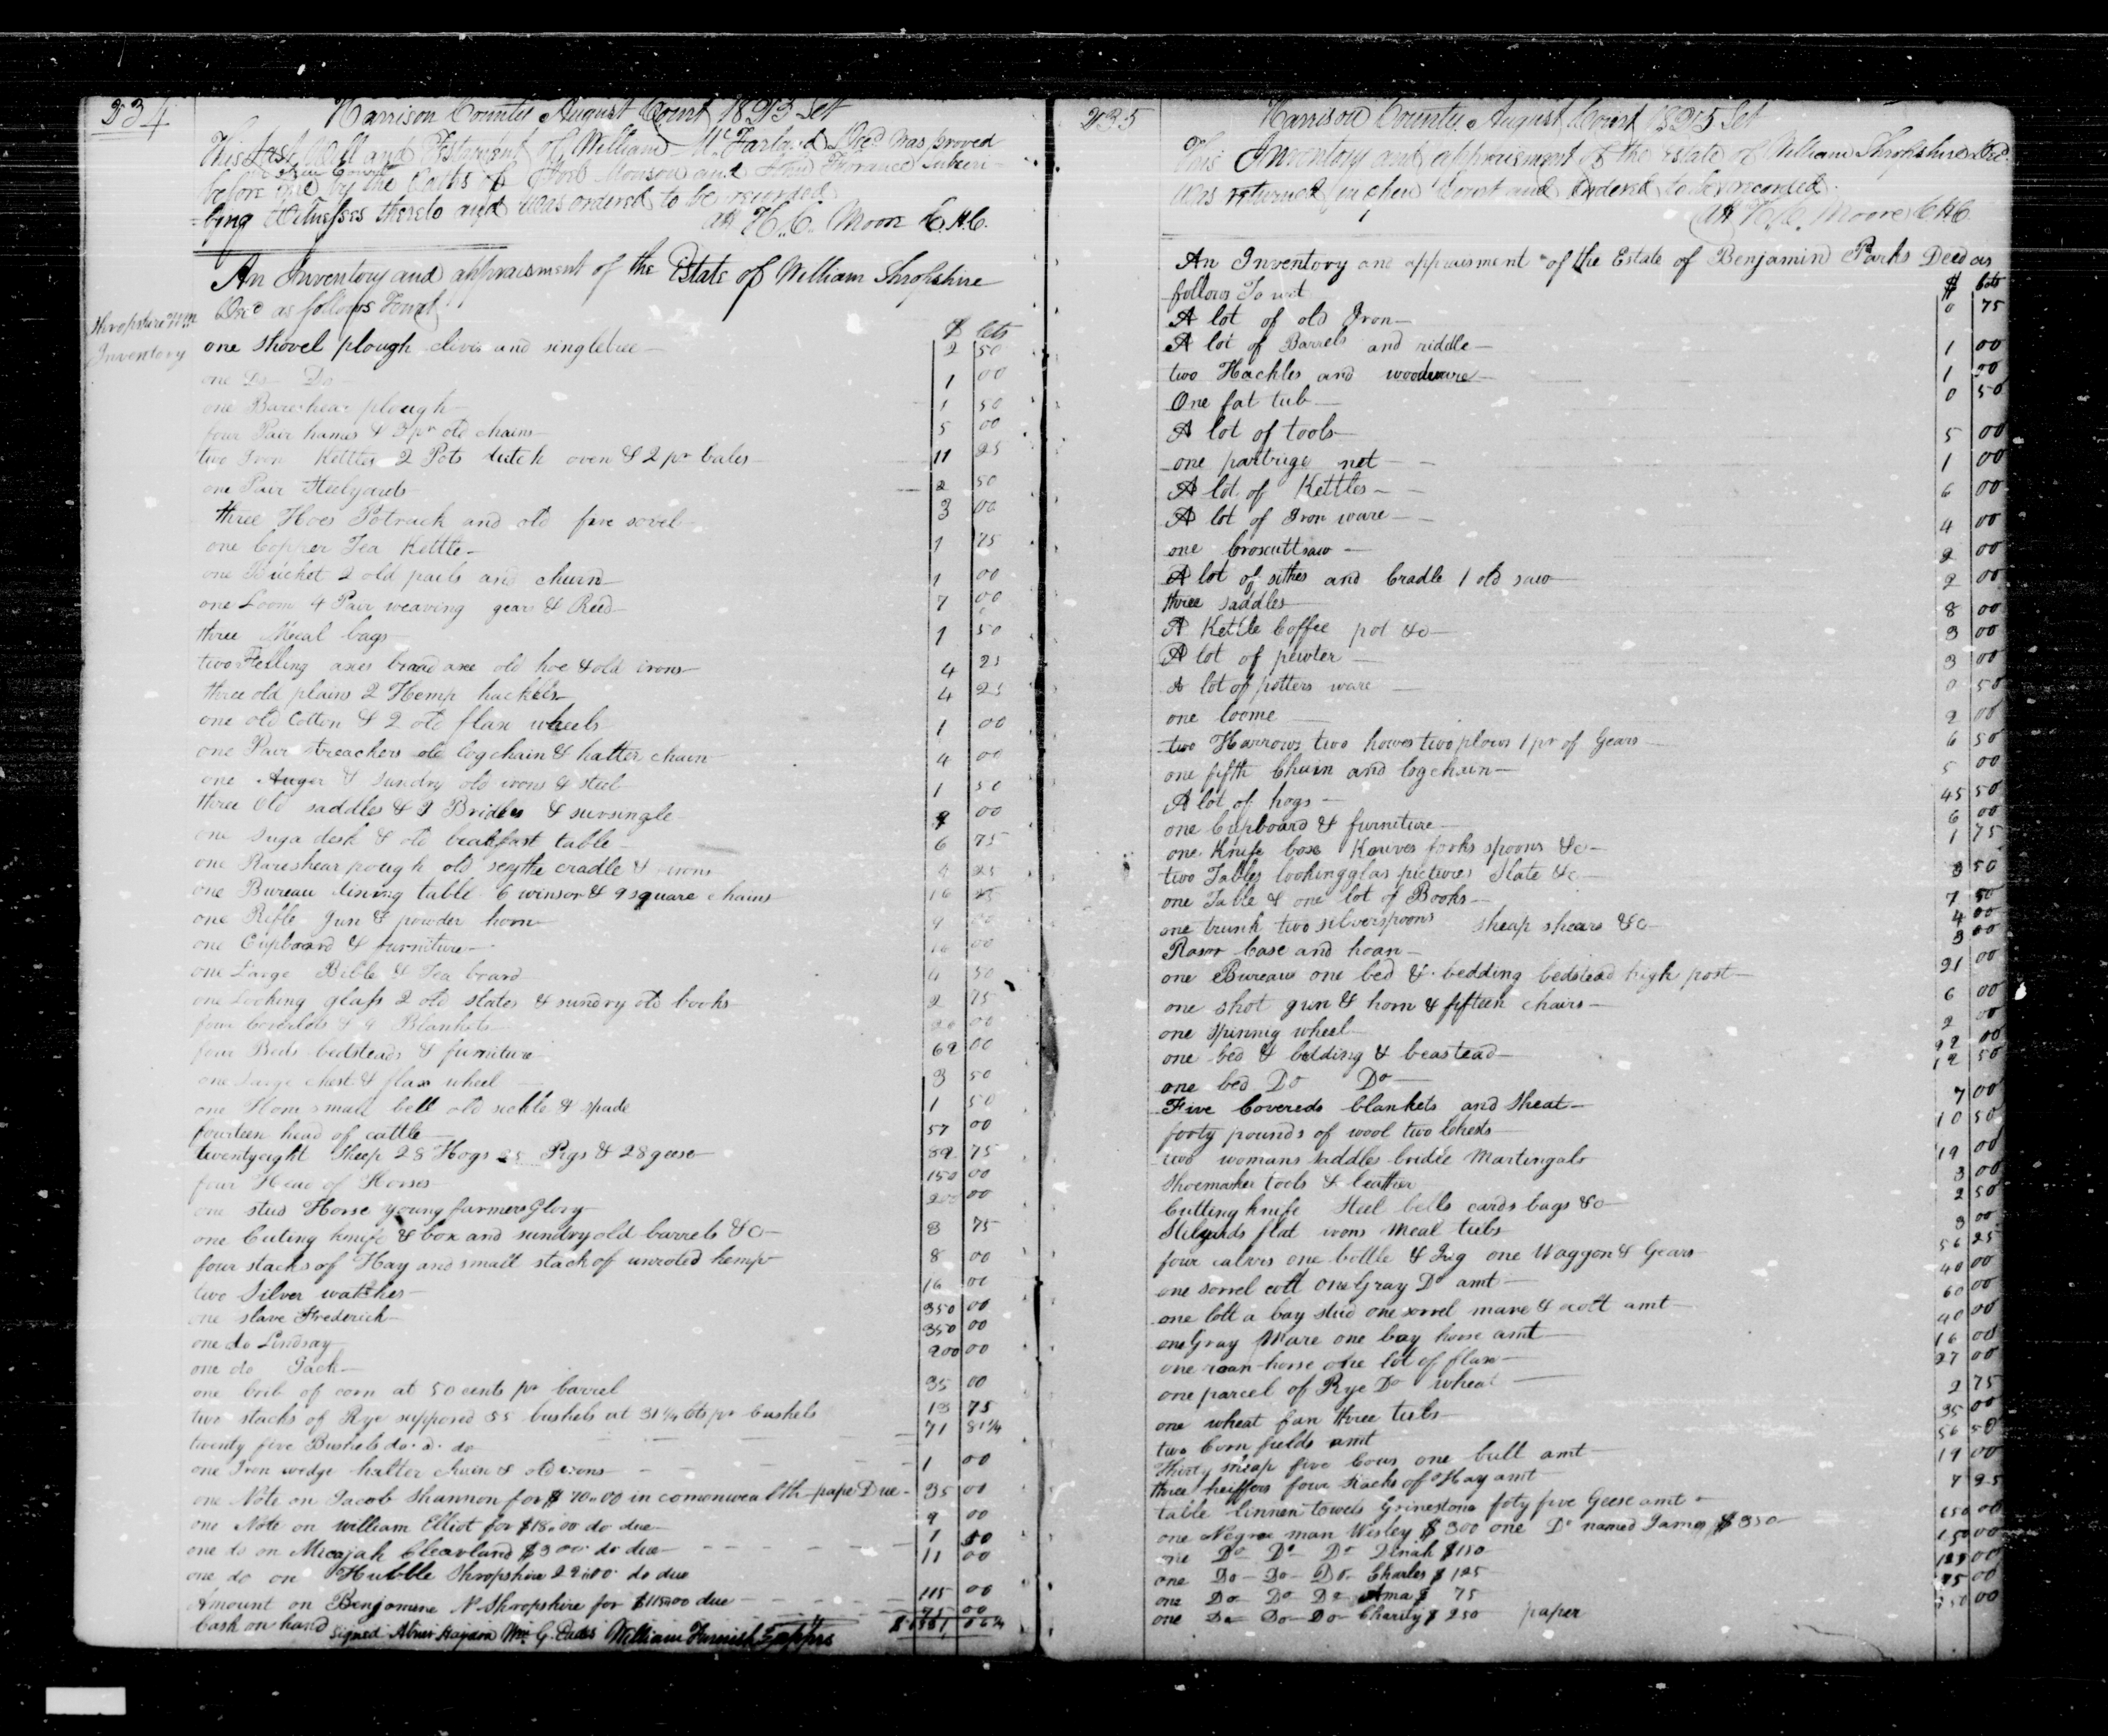 234
Harrison County August Court 1823 Set
This Last Will and Testament of William McFarland Decd was proved
before me in Court by the Oaths of Monson and Torrance Subscri
bing Witnesses thereto and was ordered to be recorded
att H. C. Moore C.H.C.
An Inventory and appraisment of the Estate of William Shropshire
Decd as follows Towit
Shropshire Wm
Inventory
$ Cts
one Shovel plough clevis and singletree 2 50
one Do Do 1 00
one Bareshear plough 1 50
four Pair hames & 3 pr old chains 5 00
two Iron Kettles 2 Pots dutch oven & 2 pr bales 11 25
one Pair Steelyards 2 50
three Hoes Potrack and old fire sovel 3 00
one Copper Tea Kettle 1 75
one Bucket 2 old pails and churn 1 00
one Loom 4 Pair weaving gears & Reed 7 00
three Meal bags 1 50
two Felling axes broad axe old hoe & old irons 4 25
three old plains 2 Hemp hackles 4 25
one old Cotton & 2 old flax wheels 1 00
one Pair streachers old logchain & halter chain 4 00
one Auger & sundry old irons & steel 1 50
three Old saddles & 2 Bridles & sursingle 8 00
one Suga desk & old breakfast table 6 75
one Bareshear pough old scythe cradle & irons 4 25
one Bureau dining table 6 winsor & 9 square chairs 16 25
one Rifle gun & powder horn 9 00
one Cupboard & furniture 16 00
one Large Bible & Tea board 4 50
one Looking glass 2 old slates & sundry old books 2 75
four Coverlids & 9 Blankets 20 00
four Beds bedsteads & furniture 62 00
one Large chest & flax wheel 3 50
one Hone small bell old sickle & spade 1 50
fourteen head of cattle 57 00
twentyeight Sheep 28 Hogs 25 Pigs & 28 geese 82 75
four Head of Horses 150 00
one stud Horse young farmers Glory 200 00
one Cuting knife & box and sundry old barrels &c 3 75
four stacks of Hay and small stack of unroted hemp 8 00
two Silver watches 16 00
one slave Frederick 350 00
one do Lindsay 350 00
one do Jack 200 00
one Crib of corn at 50 cents pr barrel 35 00
two stacks of Rye supposed 55 bushels at 31 1/4 Cts pr bushels 13 75
twenty five Bushels do. a. do 71 81 1/4
one Iron wedge halter chain & old irons 1 00
one Note on Jacob Shannon for $70.00 in comonwealth pape Due 35 00
one Note on william Elliot for $18.00 do due 9 00
one do on Micajah Cleavland $3.00 do due 1 50
one do on Hubble Shropshire 22.00 do due 11 00
Amount on Benjamine N Shropshire for $115.00 due 115 00
Cash on hand 75 00
Signed Abner Haydon Wm G. Eades William Furnish Apprs
235
Harrison County August Court 1825 Set
This Inventory and appraisment of the Estate of William Shropshire Decd
was returned in open Court and Ordered to be recorded.
att H. C. Moore C H C
An Inventory and appraisment of the Estate of Benjamin Parks Decd as
follows To wit $ Cts
A lot of old Iron 0 75
A lot of Barrels and riddle 1 00
two Hackles and woodware 1 00
One fat tub 0 50
A lot of tools 5 00
one partrige net 1 00
A lot of Kettles 6 00
A lot of Iron ware 4 00
one Croscuttsaw 2 00
A lot of sithes and Cradle 1 old saw 2 00
three saddles 8 00
A Kettle Coffee pot &c 3 00
A lot of pewter 3 00
A lot of potters ware 0 50
one loome 2 00
two Harrows two howes two plows 1 pr of Gears 6 50
one fifth Chain and logchain 5 00
A lot of hogs 45 50
one Cupboard & furniture 6 00
one Knife box Knives forks spoons &c 1 75
two Tables lookingglas pictures Slate &c 3 50
one Table & one lot of Books 7 50
one trunk two silverspoons sheap shears &c 4 00
Rasor Case and hoan 3 00
one Bureau one bed & bedding bedstead high post 21 00
one shot gun & horn & fifteen chairs 6 00
one spinnig wheel 2 00
one bed & bedding & beastead 22 00
one bed Do Do 12 50
Five Covereds blankets and Sheat 7 00
forty pounds of wool two Chests 10 50
two womans saddles bridle Martingals 19 00
Shoemaker tools & leather 3 00
Cutting knife Steel bells cards bags &c 2 50
Stilyards flat irons Meal tubs 3 00
four calves one bottle & Jug one Waggon & Gears 56 25
one sorrel colt one Gray Do amt 40 00
one lott a bay stud one sorrel mare & colt amt 60 00
one Gray Mare one bay horse amt 40 00
one roan horse one lot of flax 16 00
one parcel of Rye Do wheat 27 00
one wheat fan three tubs 2 75
two Corn fields amt 35 00
Thirty sheap five Cows one bull amt 56 50
three heiffers four stacks of Hay amt 19 00
table linnen towels Grinestone foty five Geese amt 7 25
one Negroe man Wisley $300 one Do named James $350 650 00
one Do Do Do Dinah $150 150 00
one Do Do Do Charles $125 125 00
one Do Do Do Ama $75 75 00
one Do Do Do Charity $250 paper 250 00